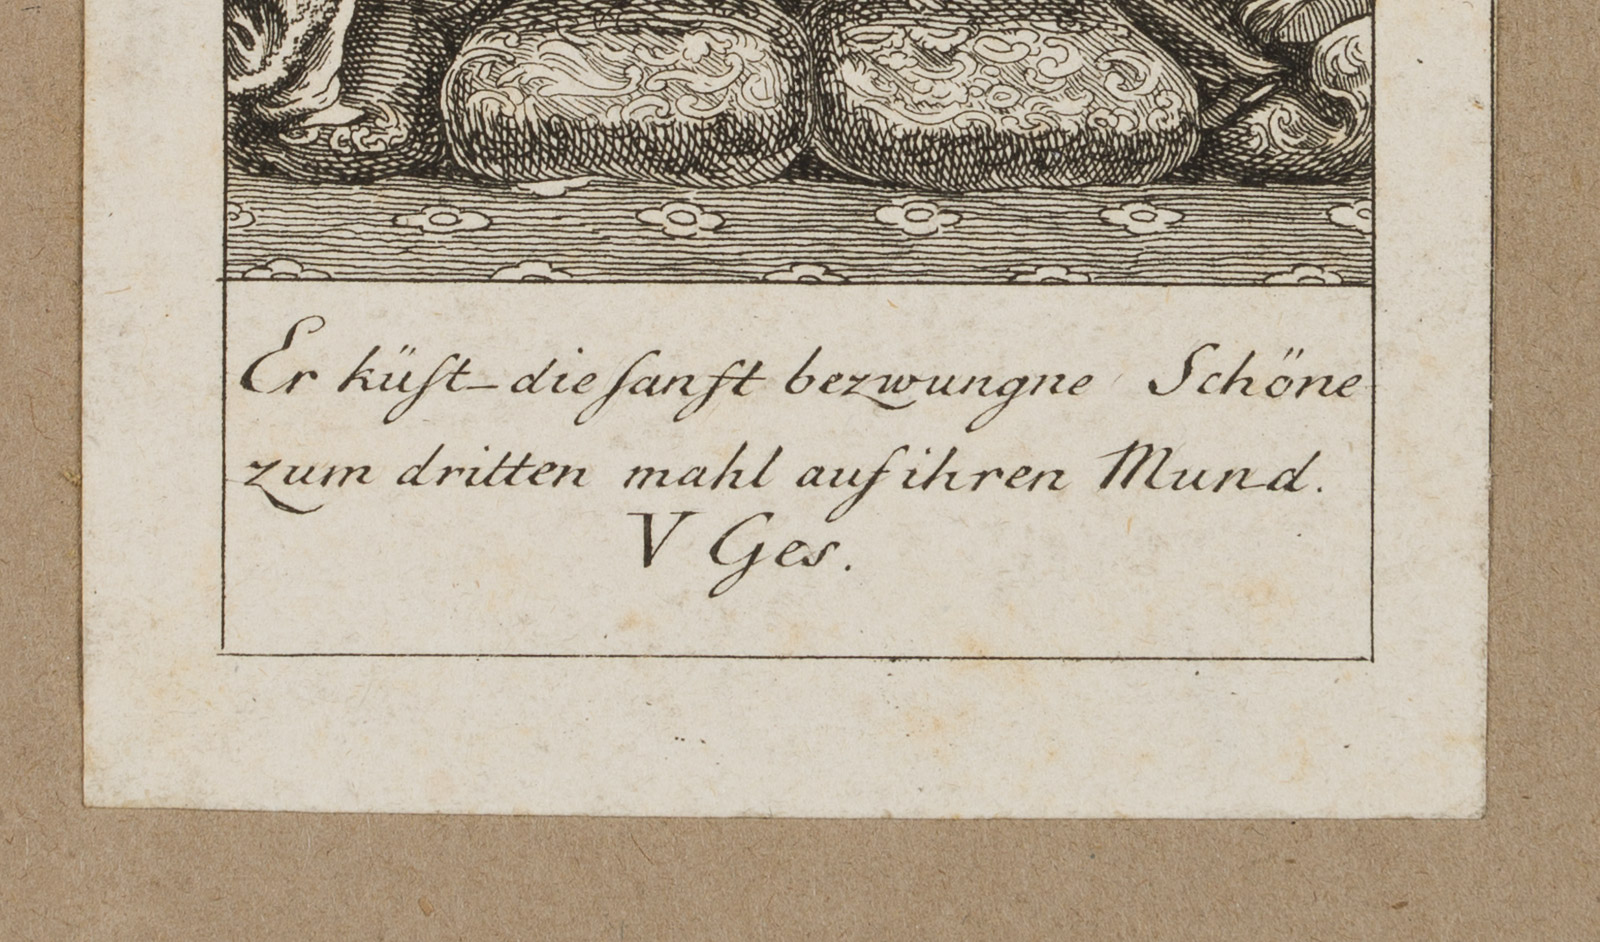 Er küſt die ſanft bezwungne Schöne
zum dritten mahl auf ihren Mund.
V Ges.